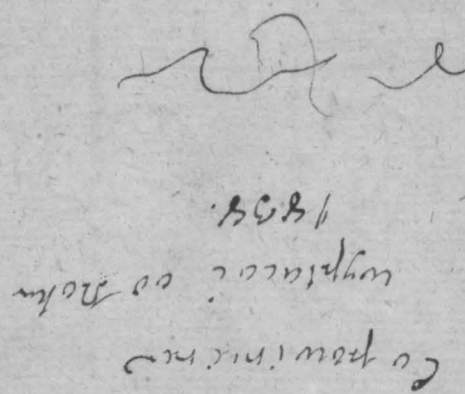 Co powinienem
wypłacać od Roku
1838.